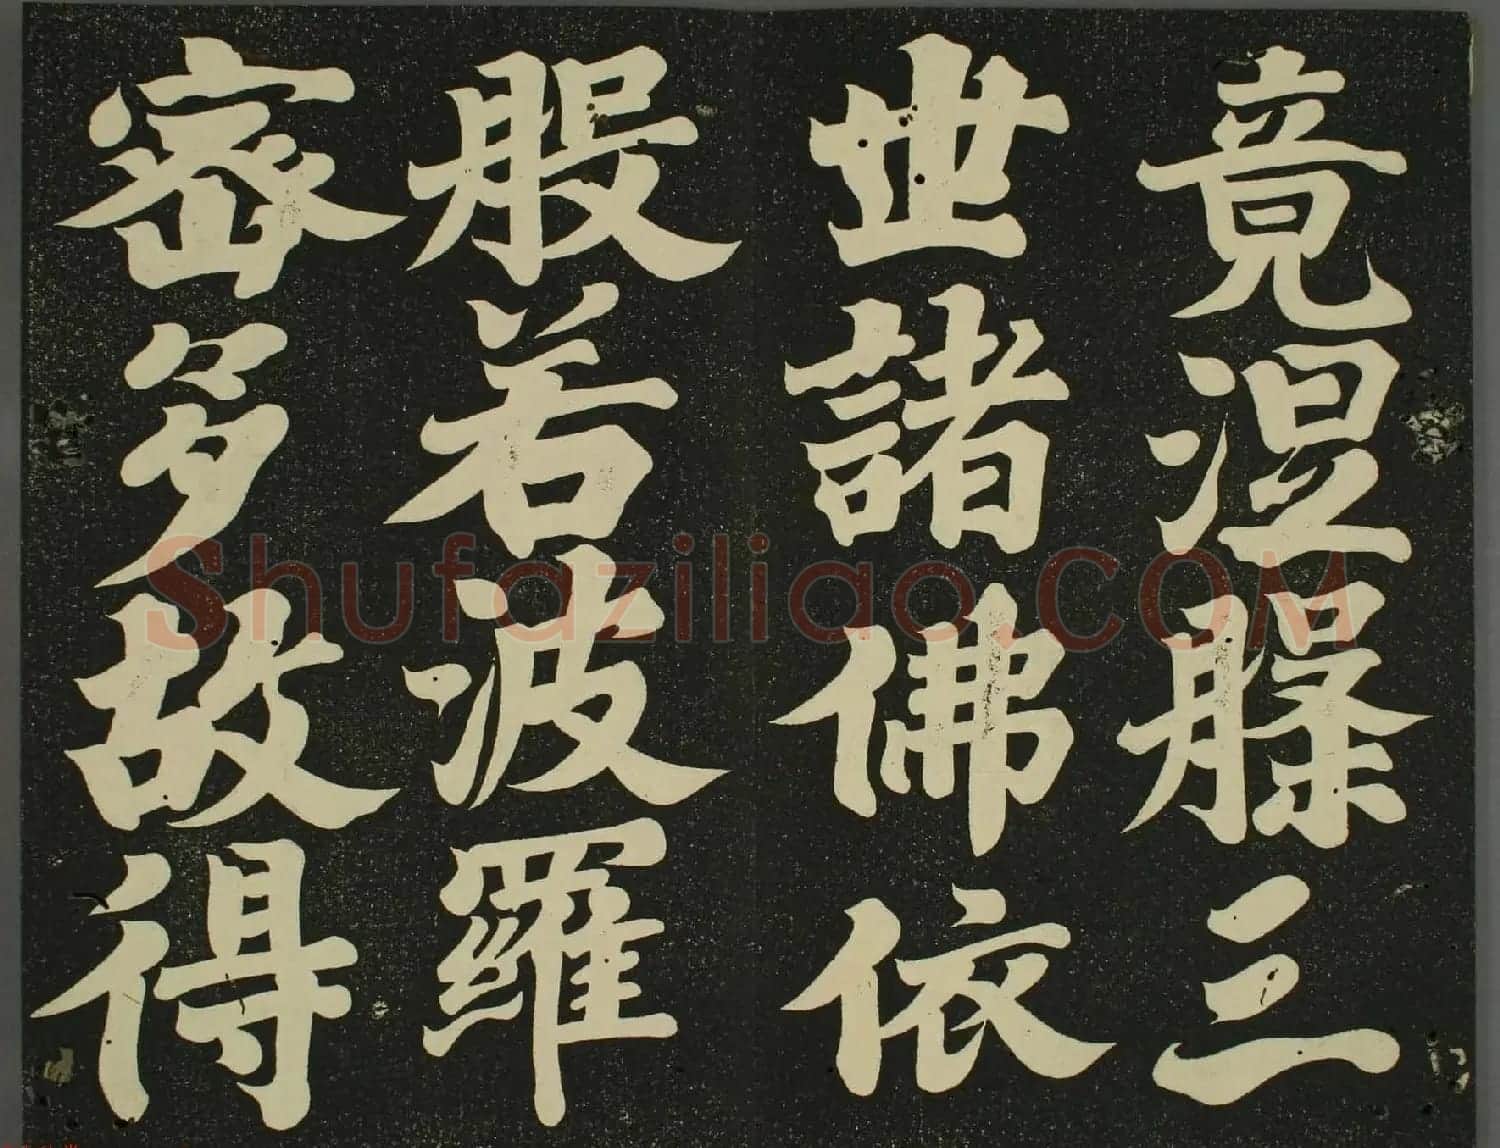 竟涅槃三
世諸佛依
般若波羅
密多故得
Shufaziliao.COM